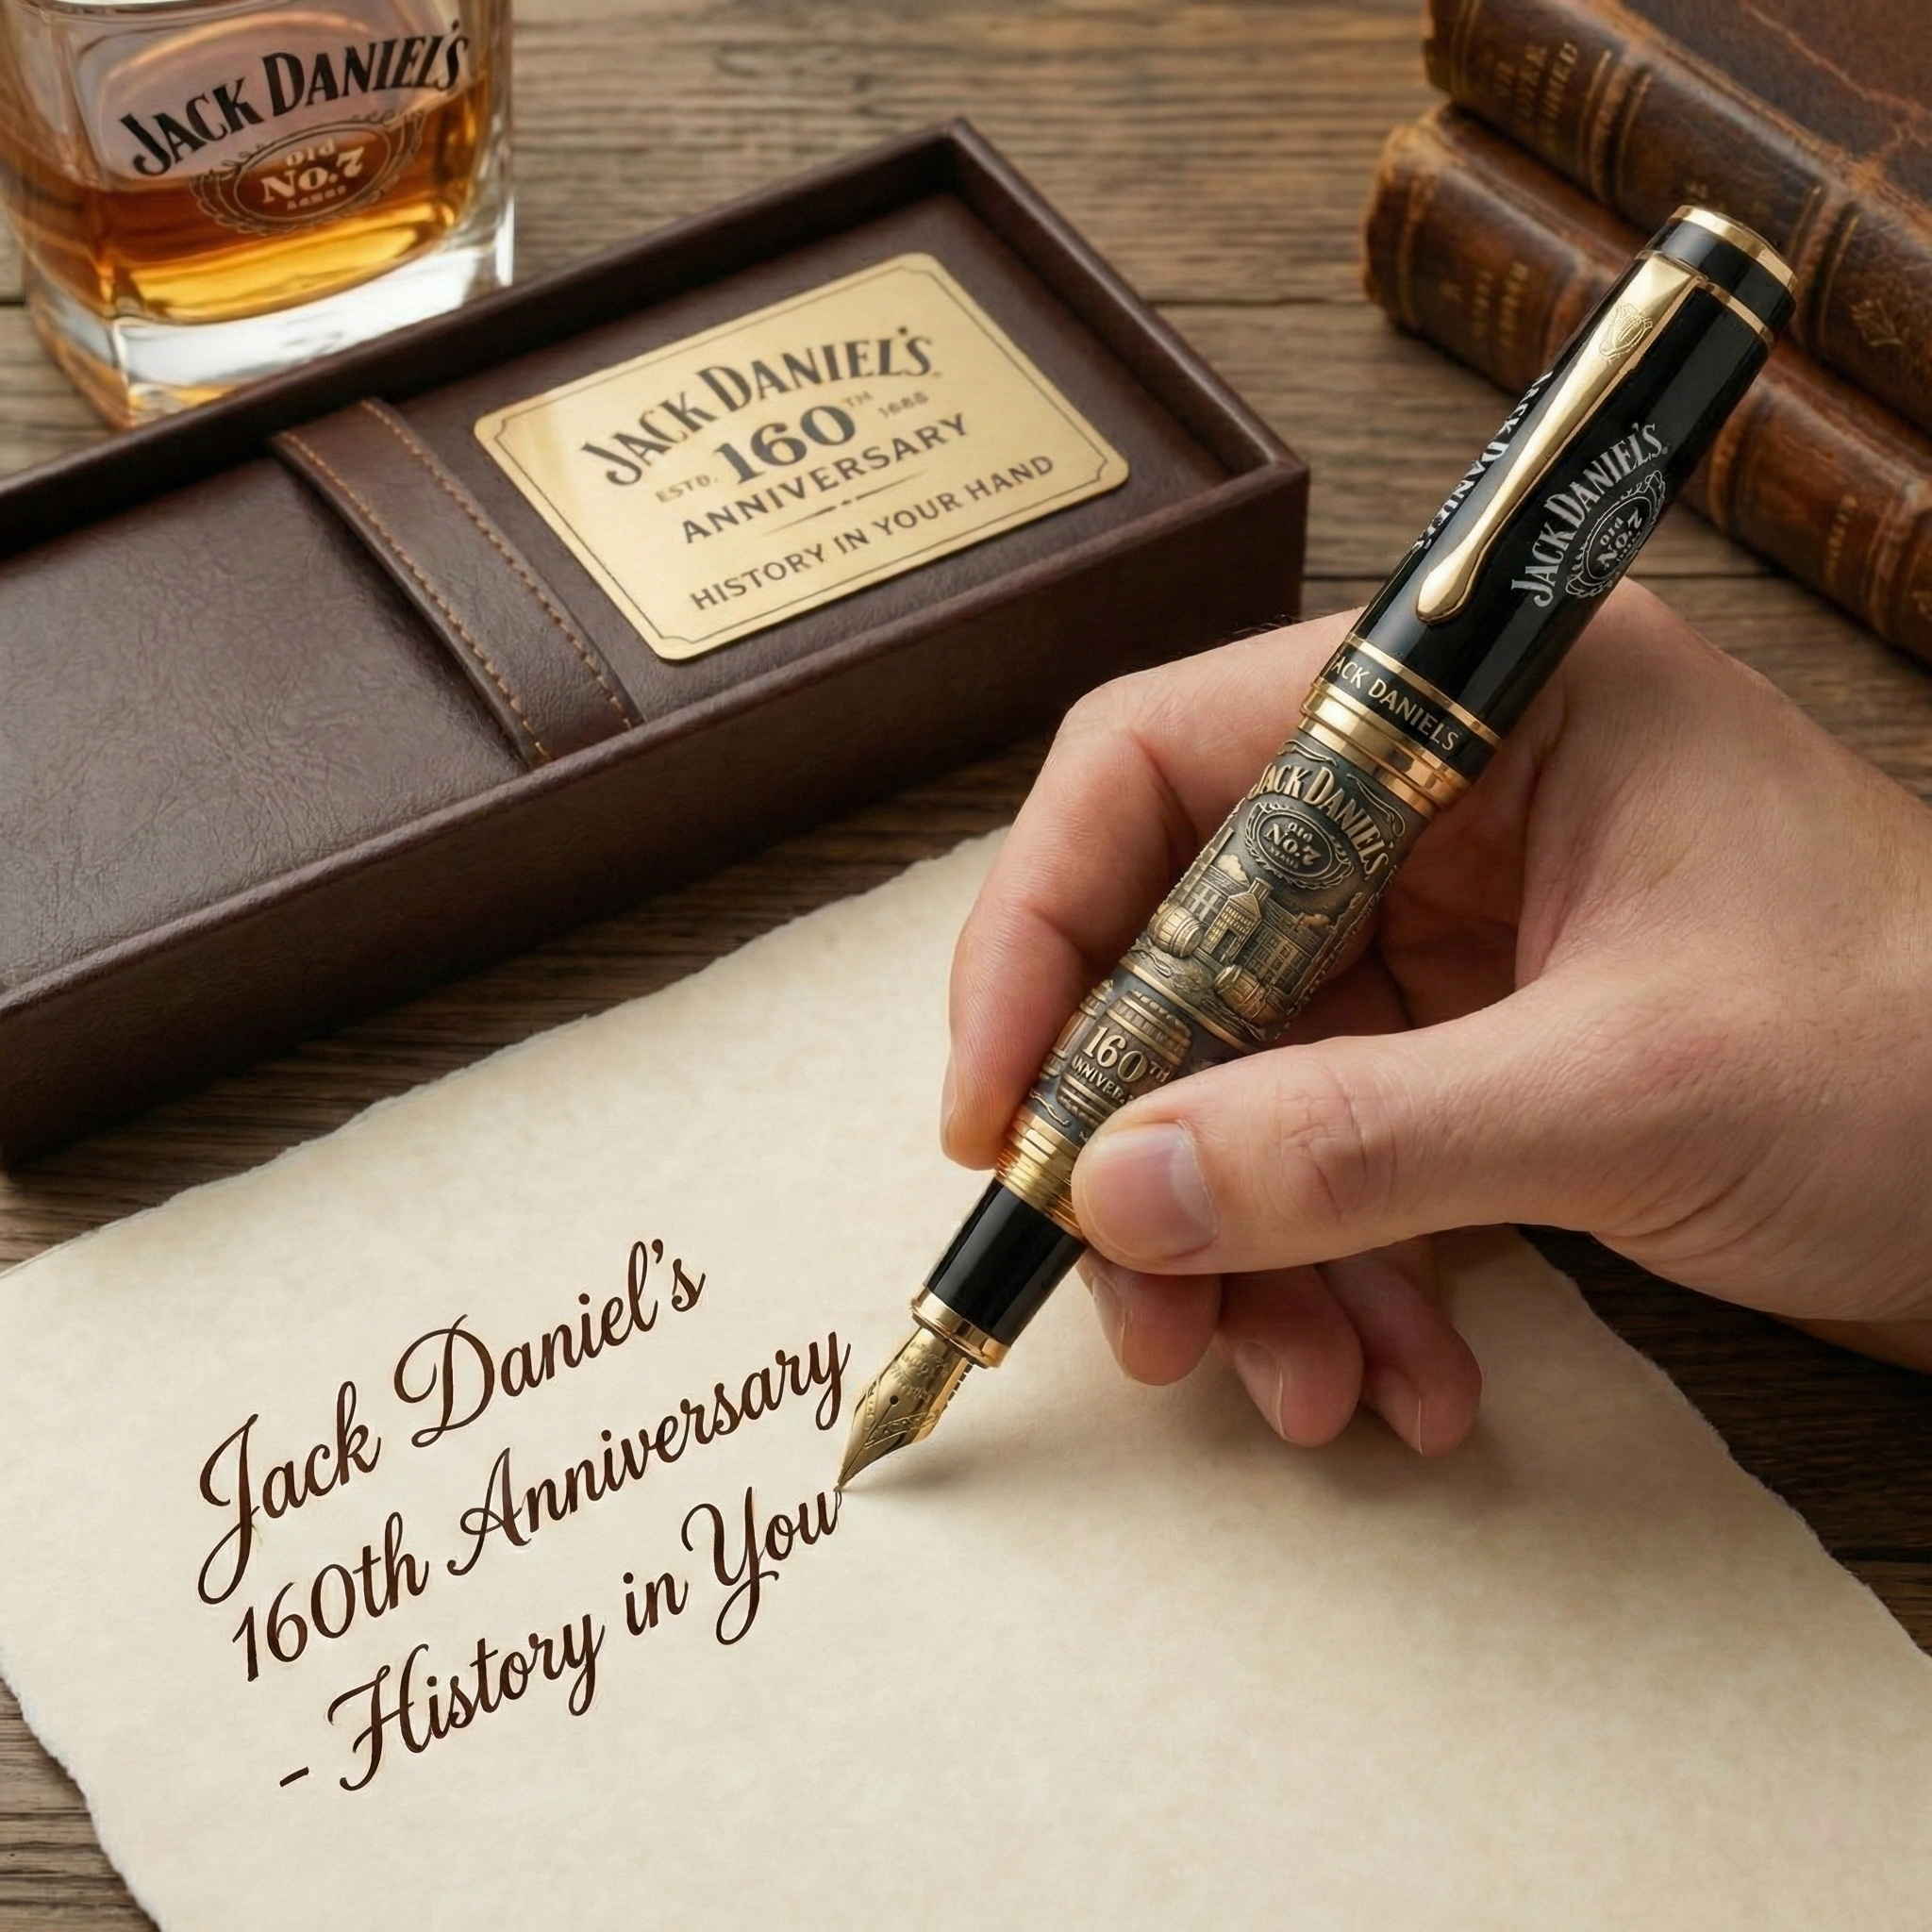 JACK DANIEL'S
Old
NO.7
JACK DANIEL'S
ESTD. 160TH
ANNIVERSARY
HISTORY IN YOUR HAND
JACK DANIEL'S
JACK DANIEL'S
Old
NO.7
JACK DANIELS
JACK DANIEL'S
Old
NO.7
160TH
Jack Daniel's
160th Anniversary
- History in You